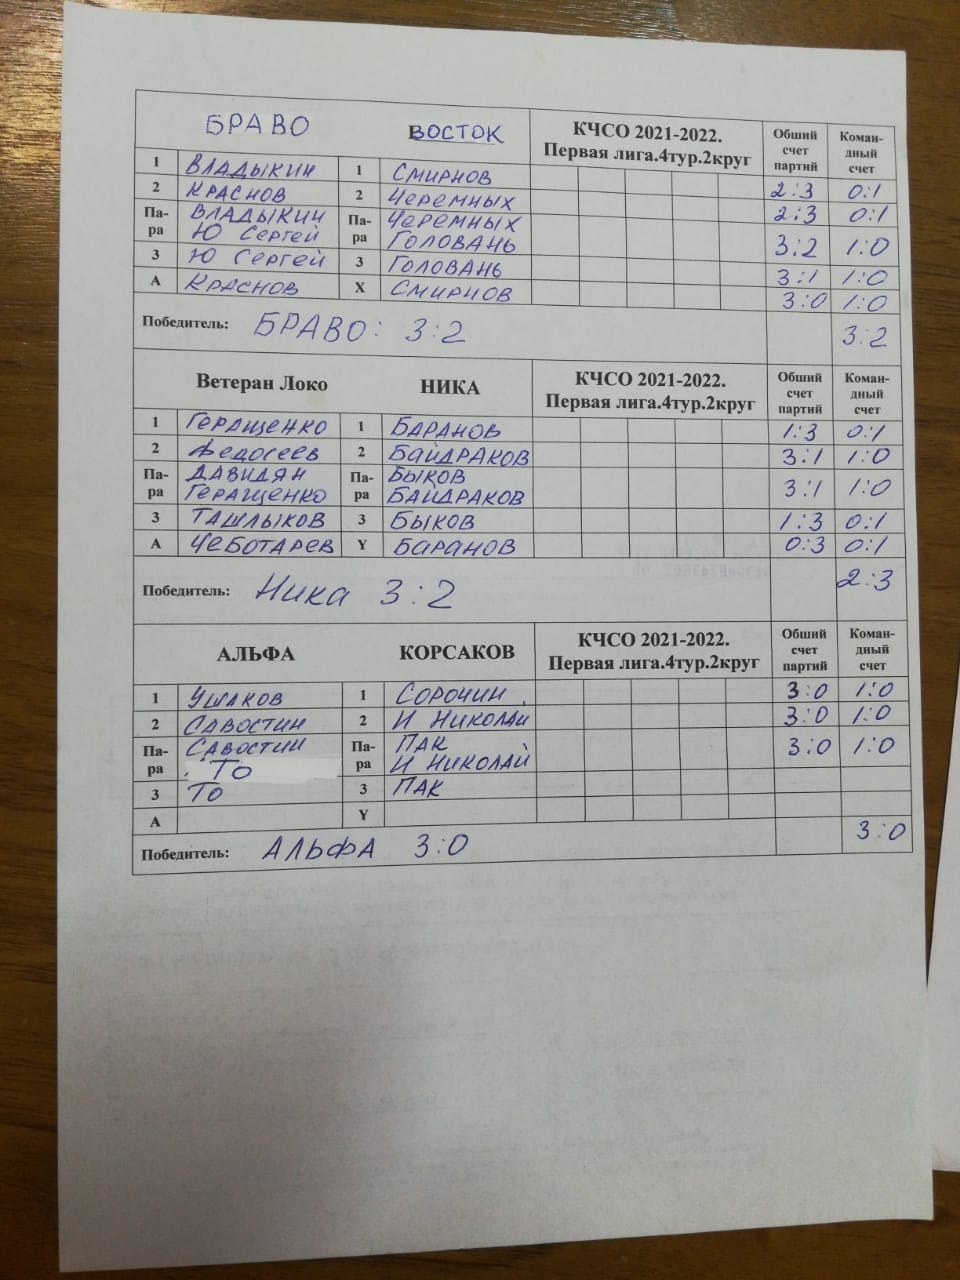 БРАВО ВОСТОК КЧСО 2021-2022. Первая лига.4тур.2круг Обший счет партий Коман-дный счет
1 ВЛАДЫКИН 1 СМИРНОВ 2:3 0:1
2 КРАСНОВ 2 ЧЕРЕМНЫХ 2:3 0:1
Па-ра ВЛАДЫКИН Ю Сергей Па-ра ЧЕРЕМНЫХ ГОЛОВАНЬ 3:2 1:0
3 Ю Сергей 3 ГОЛОВАНЬ 3:1 1:0
А КРАСНОВ X СМИРНОВ 3:0 1:0
Победитель: БРАВО: 3:2 3:2
Ветеран Локо НИКА КЧСО 2021-2022. Первая лига.4тур.2круг Обший счет партий Коман-дный счет
1 ГЕРАЩЕНКО 1 БАРАНОВ 1:3 0:1
2 Федосеев 2 БАЙДРАКОВ 3:1 1:0
Па-ра ДАВИДЯН ГЕРАЩЕНКО Па-ра БЫКОВ БАЙДРАКОВ 3:1 1:0
3 ТАШЛЫКОВ 3 БЫКОВ 1:3 0:1
А ЧЕБОТАРЕВ Y БАРАНОВ 0:3 0:1
Победитель: Ника 3:2 2:3
АЛЬФА КОРСАКОВ КЧСО 2021-2022. Первая лига.4тур.2круг Обший счет партий Коман-дный счет
1 УШАКОВ 1 СОРОЧИН 3:0 1:0
2 САВОСТИН 2 И НИКОЛАЙ 3:0 1:0
Па-ра САВОСТИН ТО Па-ра ПАК И НИКОЛАЙ 3:0 1:0
3 ТО 3 ПАК
А Y
Победитель: АЛЬФА 3:0 3:0